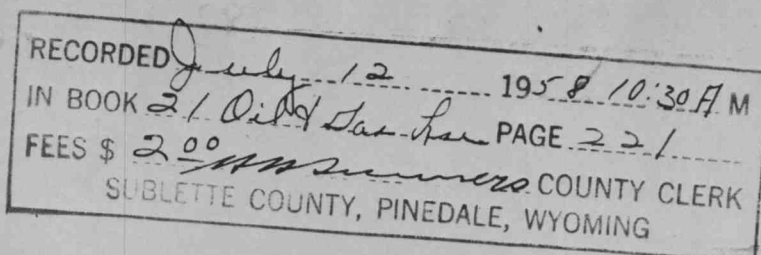 RECORDED July 12 1958 10:30 A M
IN BOOK 21 Oil & Gas Lse PAGE 221
FEES $ 2.00 Summers COUNTY CLERK
SUBLETTE COUNTY, PINEDALE, WYOMING